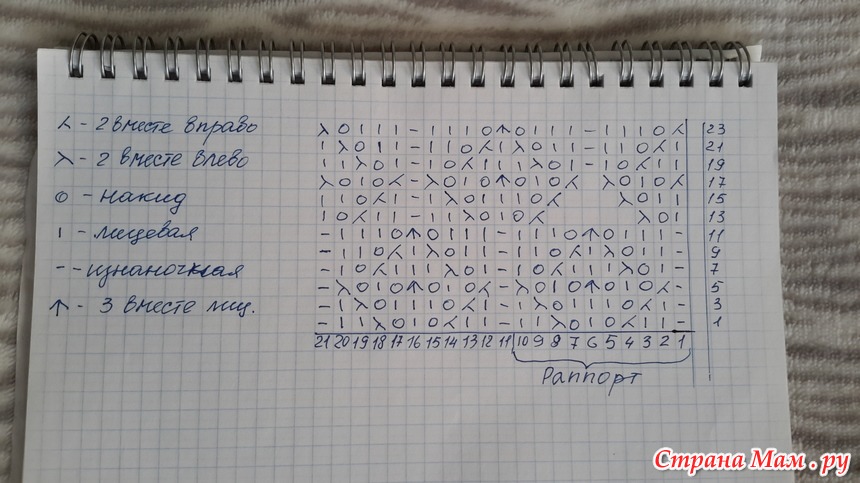 ⋌ - 2 вместе вправо
λ - 2 вместе влево
О - накид
I - лицевая
- - изнаночная
↑ - 3 вместе лиц.
λ O I I I - I I I O ↑ O I I I - I I I O ⋌ 23
I λ O I I - I I O ⋌ I λ O I I - I I O ⋌ I 21
I I λ O I - I O ⋌ I I I λ O I - I O ⋌ I I 19
λ O I O ⋌ - λ O I O ↑ O I O ⋌ λ O I O ⋌ 17
I I O ⋌ I - I λ O I I I O ⋌ λ O I I 15
I O ⋌ I I - I I λ O I O ⋌ λ O I 13
- I I I O ↑ O I I I - I I I O ↑ O I I I - 11
- I I O ⋌ I λ O I I - I I O ⋌ I λ O I I - 9
- I O ⋌ I I I λ O I - I O ⋌ I I I λ O I - 7
- λ O I O ↑ O I O ⋌ - λ O I O ↑ O I O ⋌ - 5
- I λ O I I I O ⋌ I - I λ O I I I O ⋌ I - 3
- I I λ O I O ⋌ I I - I I λ O I O ⋌ I I - 1
21 20 19 18 17 16 15 14 13 12 11 10 9 8 7 6 5 4 3 2 1
Раппорт
Страна Мам.ру